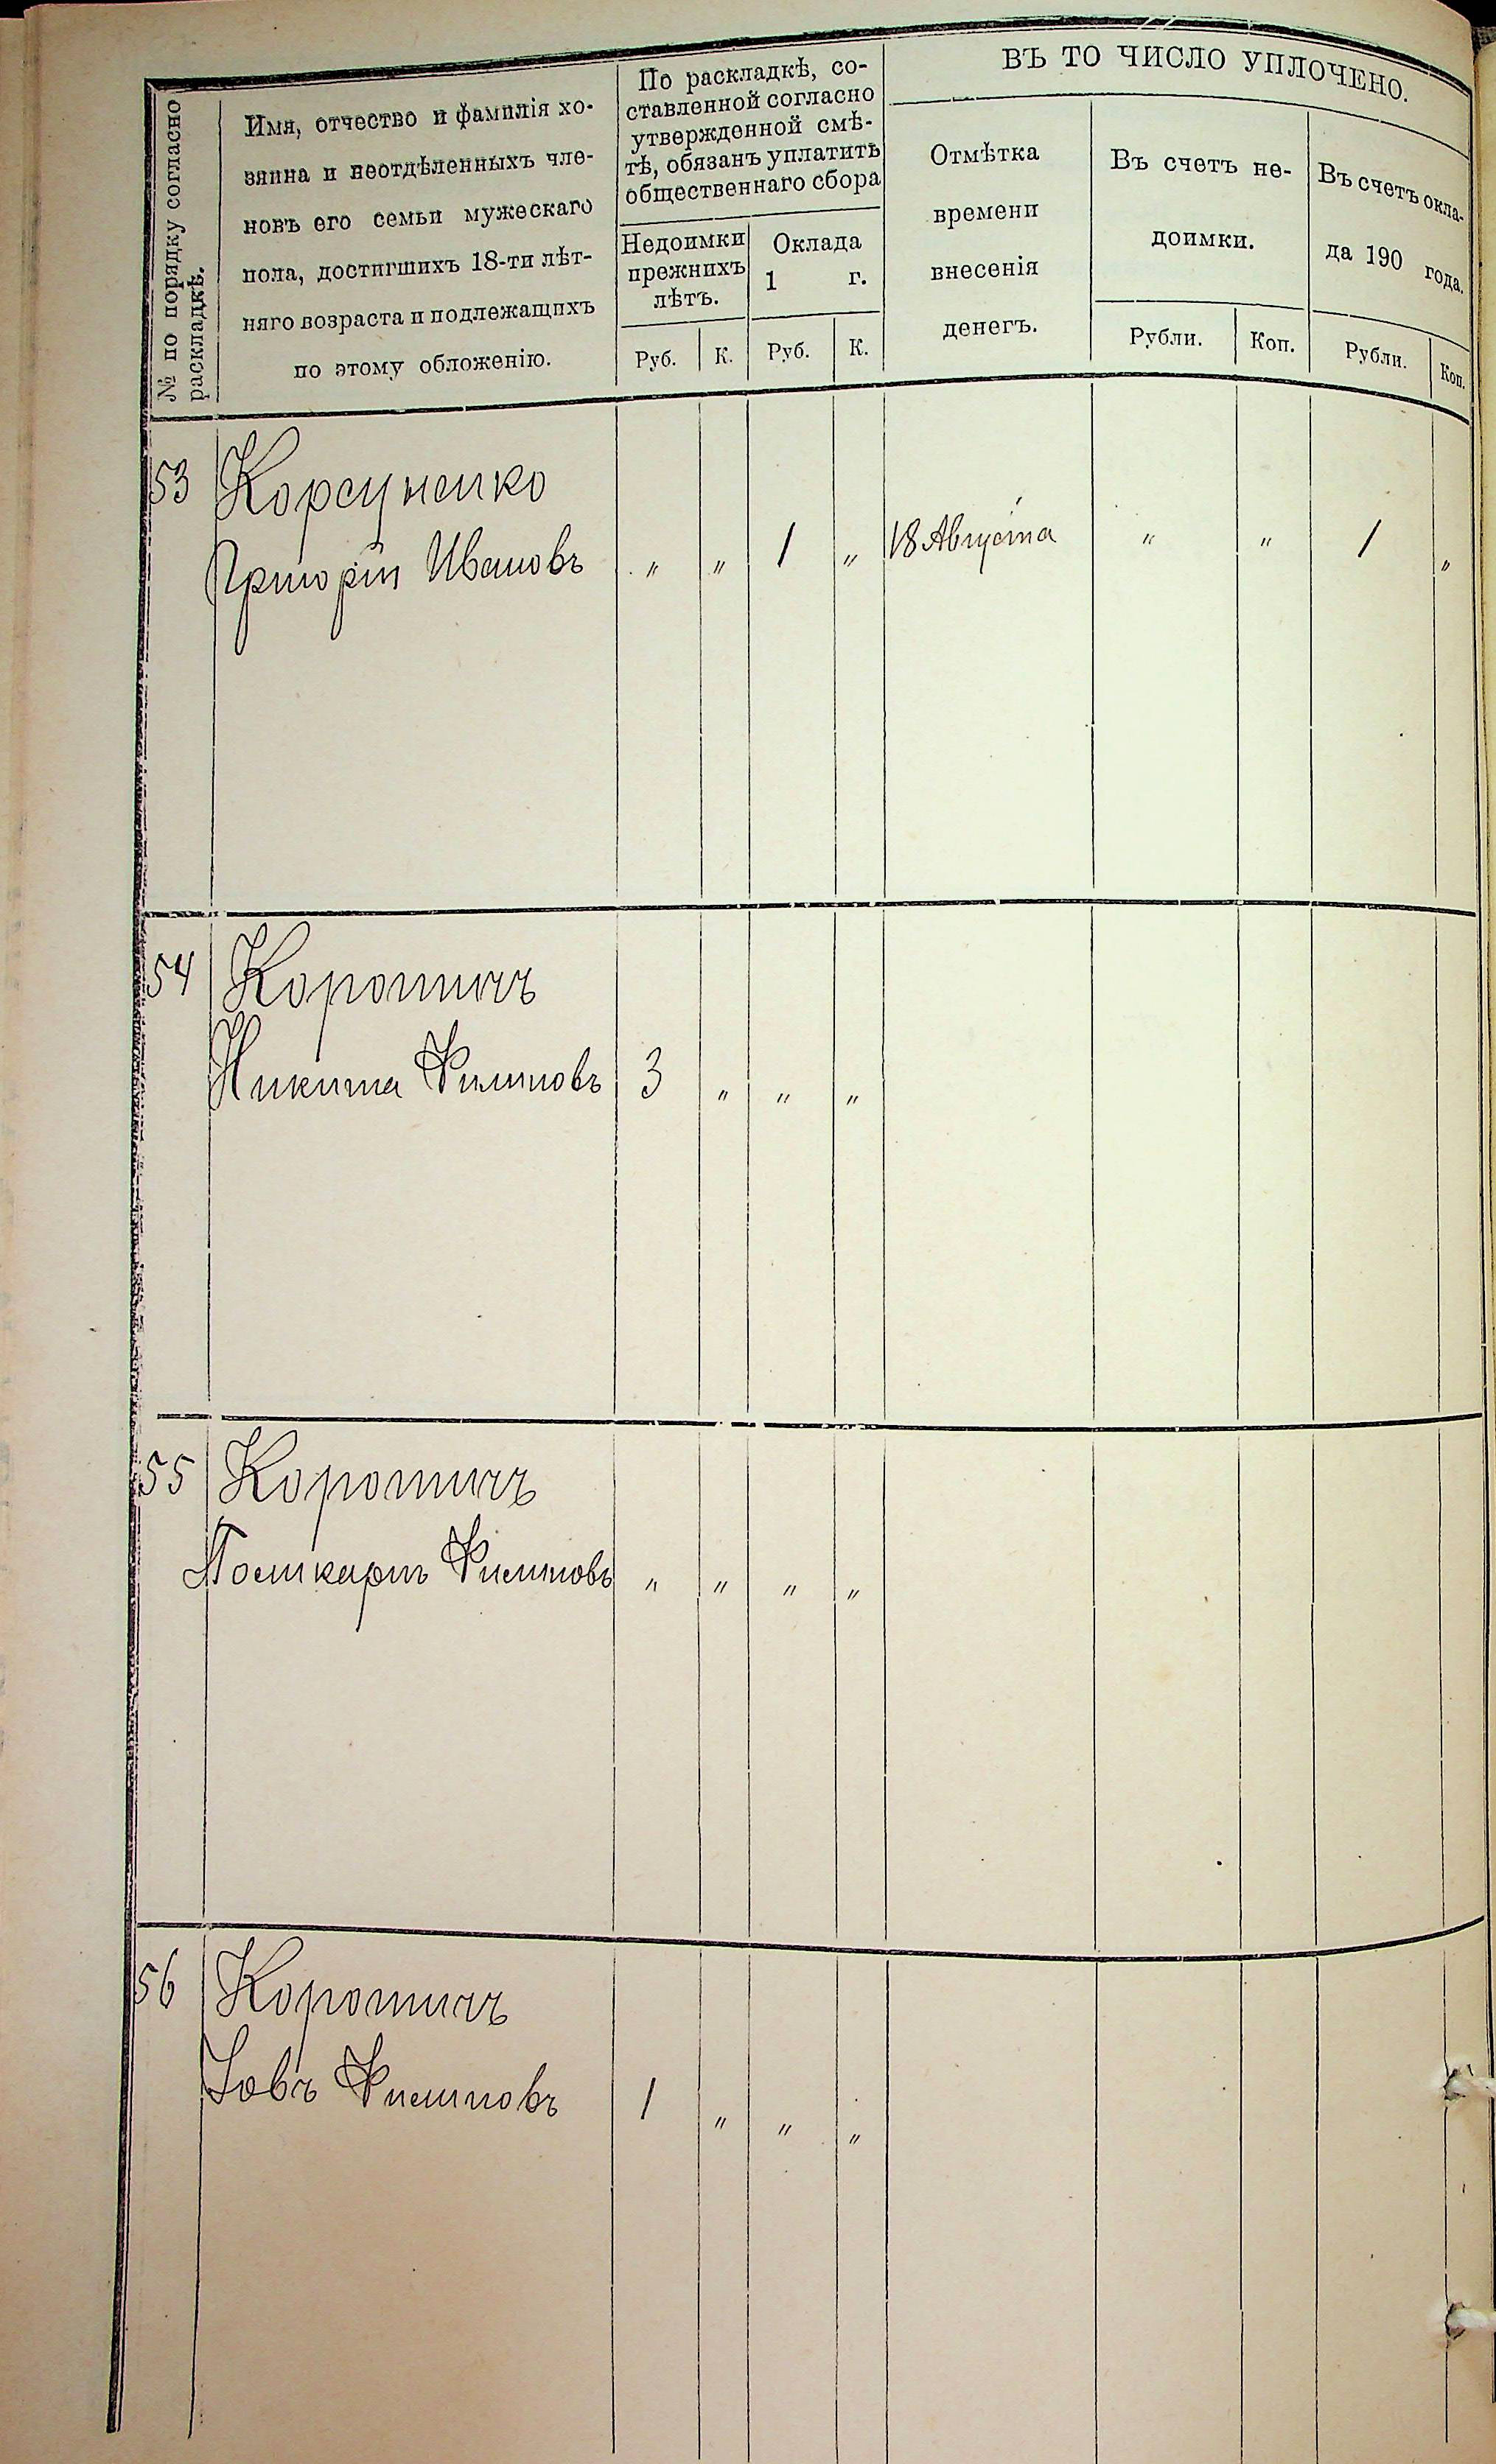 № по порядку согласно
раскладкѣ.
Имя, отчество и фамилія хо-
зяина и неотдѣленныхъ чле-
новъ его семьи мужескаго
пола, достигшихъ 18-ти лѣт-
няго возраста и подлежащихъ
по этому обложенію.
По раскладкѣ, со-
ставленной согласно
утвержденной смѣ-
тѣ, обязанъ уплатить
общественнаго сбора
Недоимки
прежнихъ
лѣтъ.
Оклада
1 г.
Руб. К. Руб. К.
ВЪ ТО ЧИСЛО УПЛОЧЕНО.
Отмѣтка
времени
внесенія
денегъ.
Въ счетъ не-
доимки.
Рубли. Коп.
Въ счетъ окла-
да 190 года.
Рубли. Коп.
53 Корсуненко
Григорій Ивановъ „ „ 1 „ 18 Августа „ „ 1 „
54 Коротичъ
Никита Филиповъ 3 „ „ „
55 Коротичъ
Поликарпъ Филиповъ „ „ „ „
56 Коротичъ
Іовъ Филиповъ 1 „ „ „